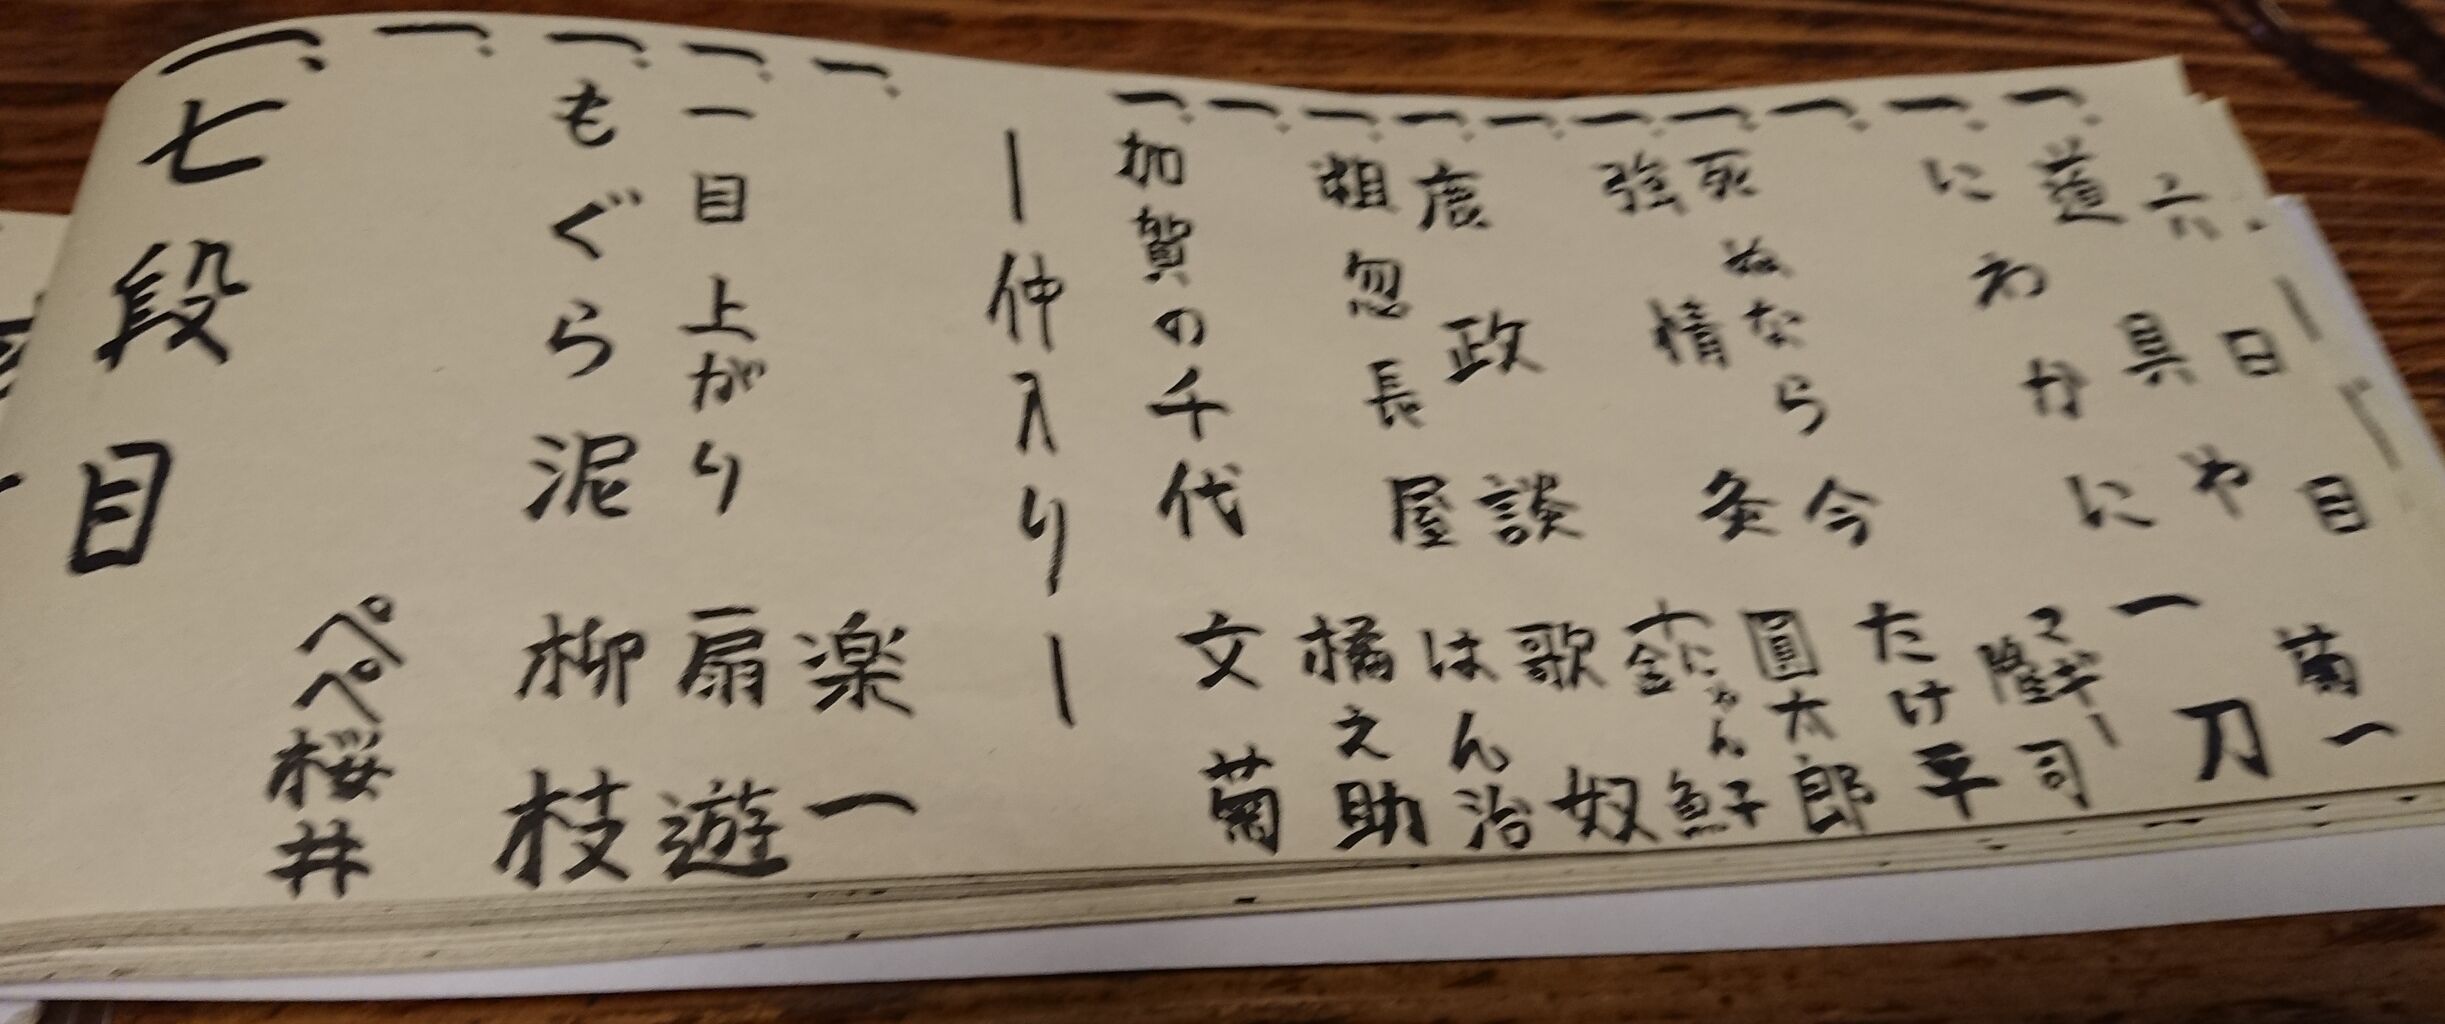 六日目
一、道具や 菊一
一、にわかに 一刀
一、 マギー隆司
一、死ぬなら今 たけ平
一、強情灸 圓太郎
一、 にゃん子金魚
一、鹿政談 歌奴
一、粗忽長屋 はん治
一、 橘之助
一、加賀の千代 文菊
ー仲入りー
一、 楽一
一、一目上がり 扇遊
一、もぐら泥 柳枝
一、 ペペ桜井
一、七段目